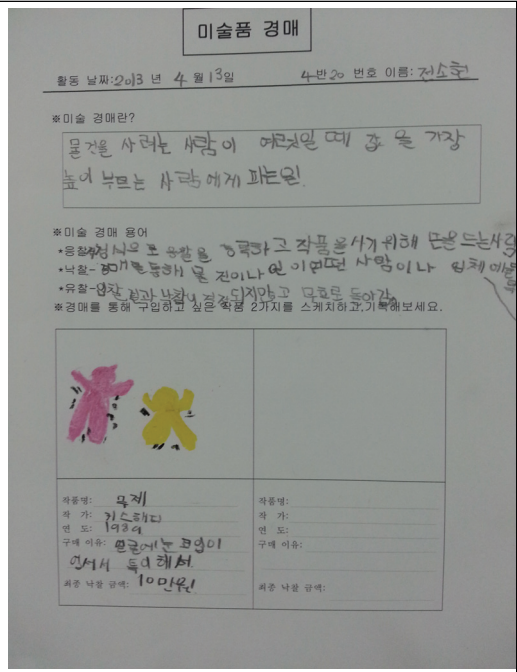 미술품 경매
활동 날짜:2013 년 4 월13일 4반20 번호 이름:전소현
※미술 경매란?
물건을 사려는 사람이 여럿일 때 값을 가장
높이 부르는 사람에게 파는일!
※미술 경매 용어
*응찰- 응찰을 등록하고 작품을 사기위해 손을드는사람
*낙찰-경매를통해 물건이나 일이 어떤 사람이나 업체에
*유찰-입찰 결과 낙찰이 결정되지않고 무효로 돌아감
※경매를 통해 구입하고 싶은 작품 2가지를 스케치하고,기록해보세요.
작품명: 무제
작 가: 키스해링
연 도: 1989
구매 이유: 얼굴에눈코입이
없어서 특이해서
최종 낙찰 금액: 10만원!
작품명:
작 가:
연 도:
구매 이유:
최종 낙찰 금액: